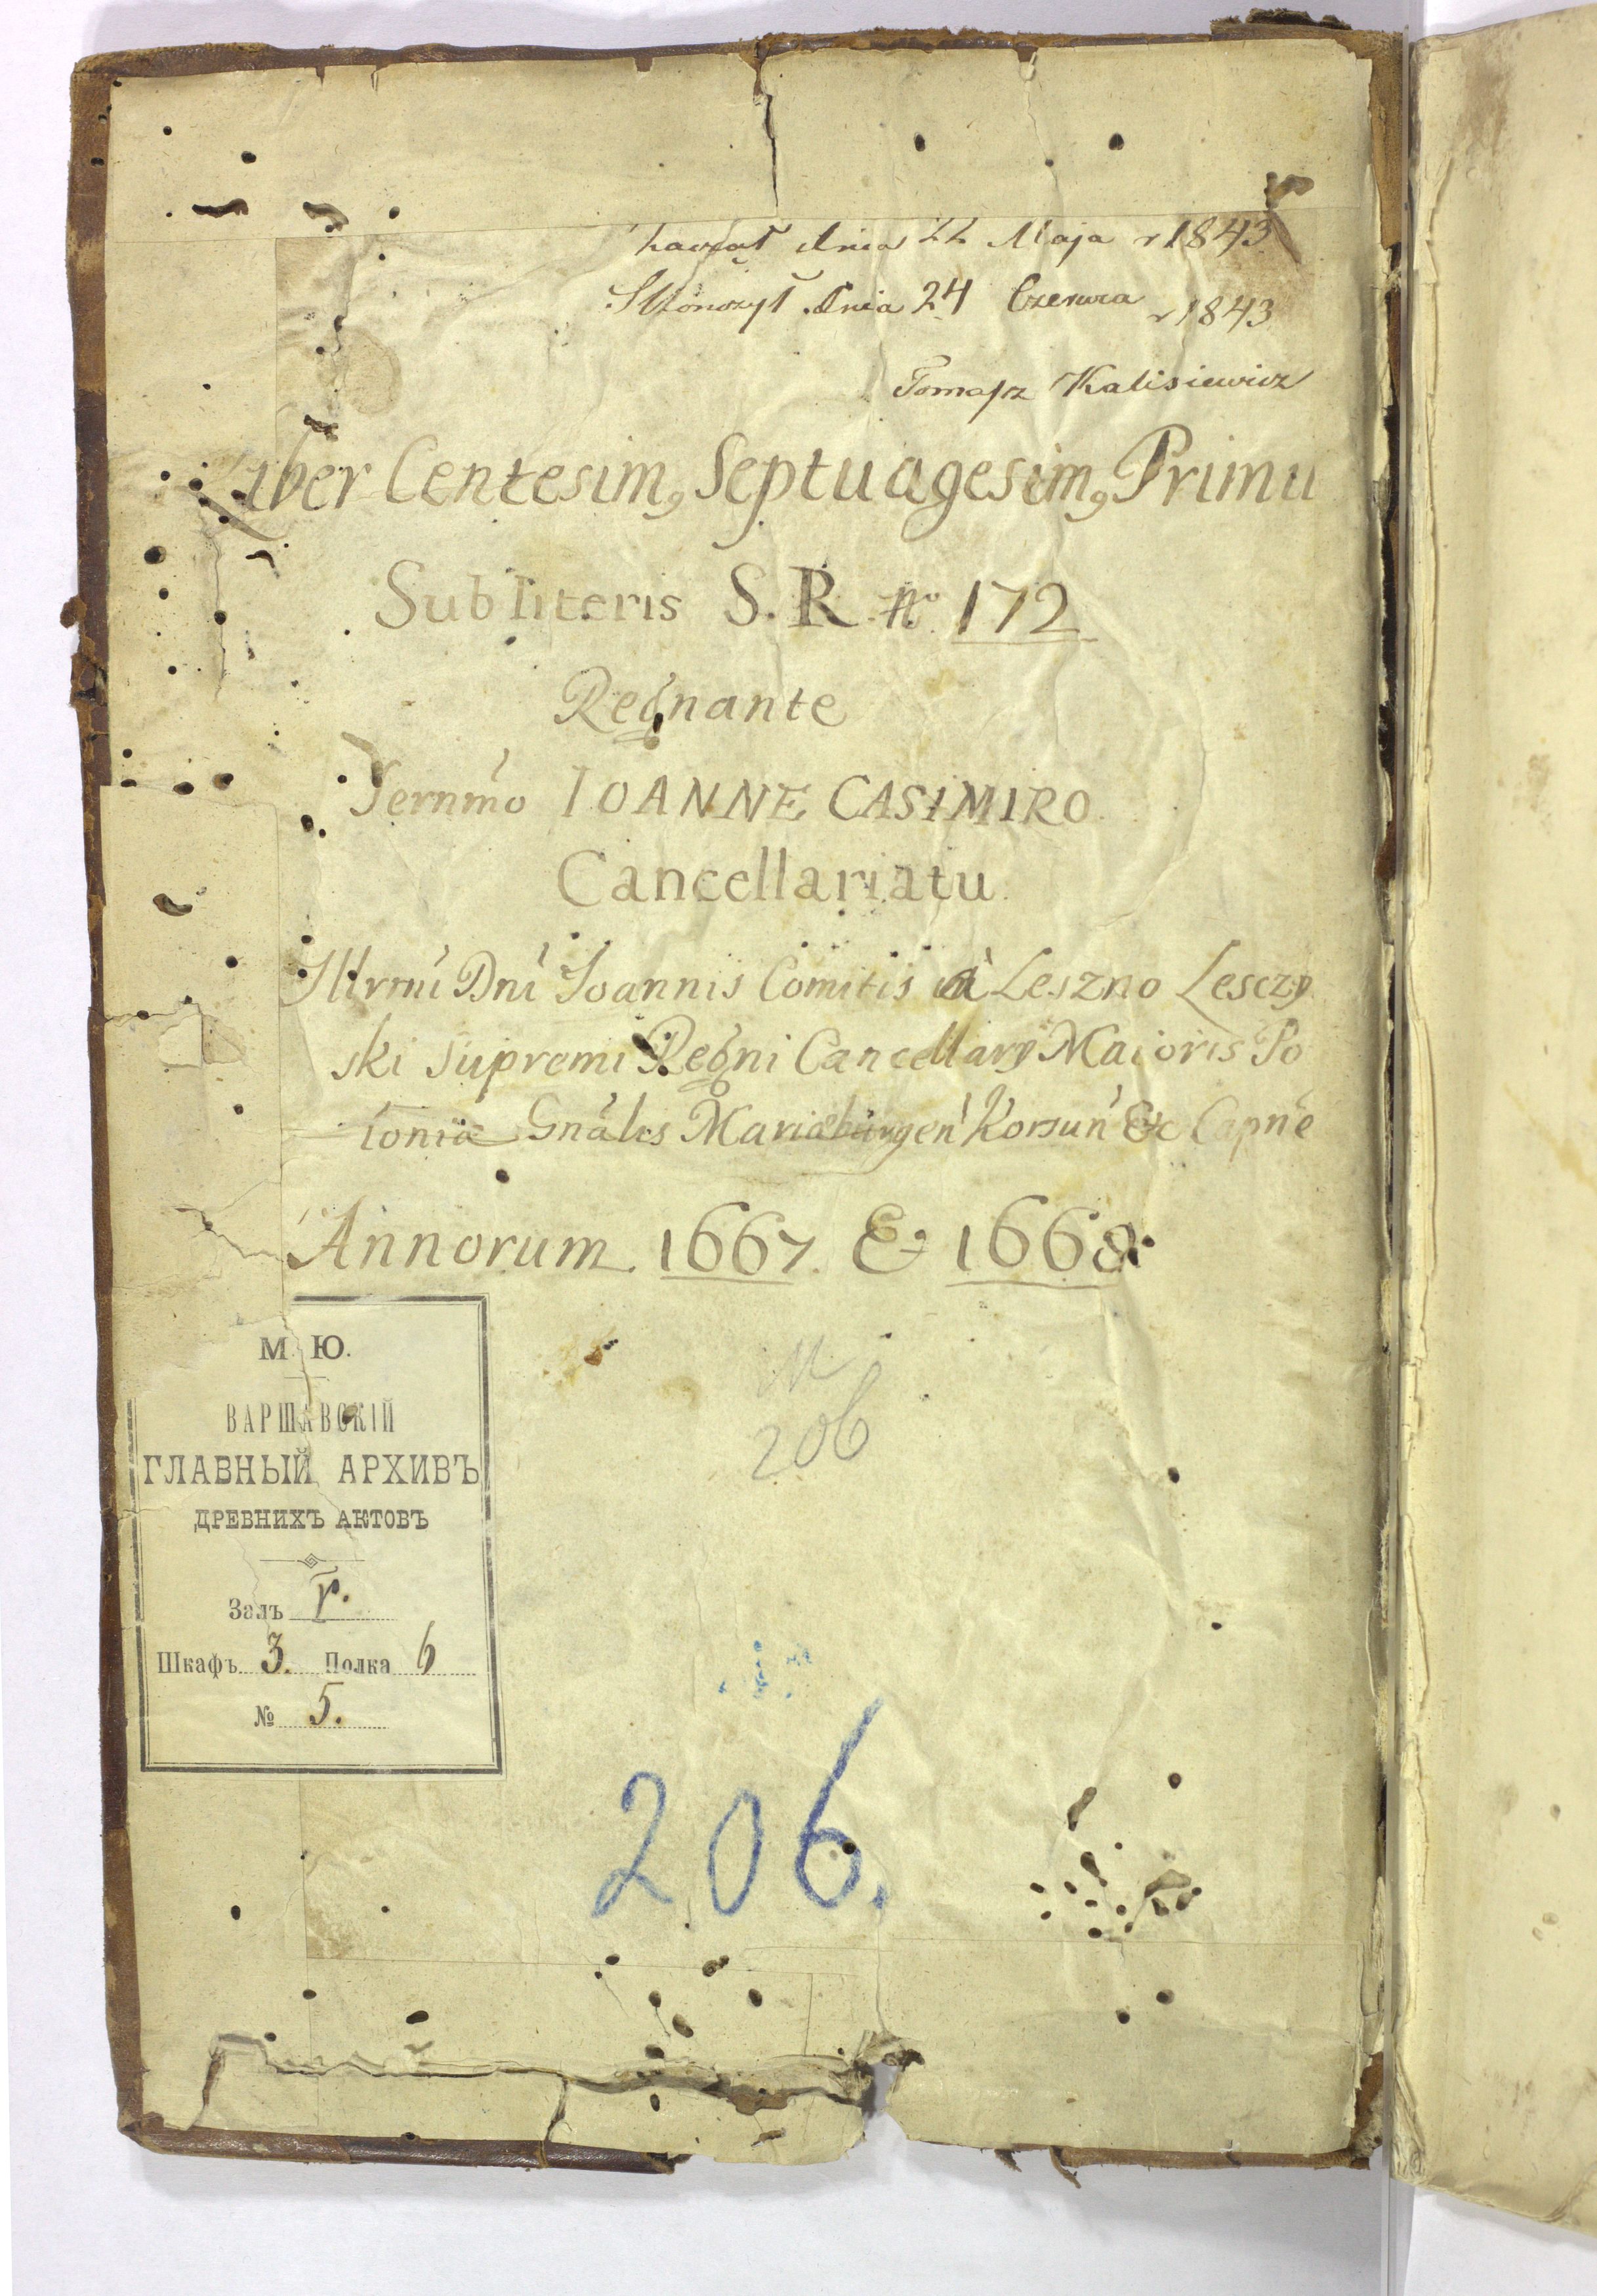 zaczął dnia 22 Maja r 1843
Skończył dnia 24 Czerwca r 1843
Tomasz Kalisiewicz
Liber Centesimꝯ Septuagesimꝯ Primu
Sub literis S. R. No. 172
Regnante
Sernm̃o IOANNE CASIMIRO
Cancellariatu
Illrmi Dni Ioannis Comitis à Leszno Lesczy
ski Supremi Regni Cancellarij Maioris Po
loniæ Gnalis Mariæburgen Korsun &c Capne
Annorum 1667. & 1668.
М. Ю.
ВАРШАВСКІЙ
ГЛАВНЫЙ АРХИВЪ
ДРЕВНИХЪ АКТОВЪ
Залъ I.
Шкафъ 3. Полка 6
№ 5.
206
206.